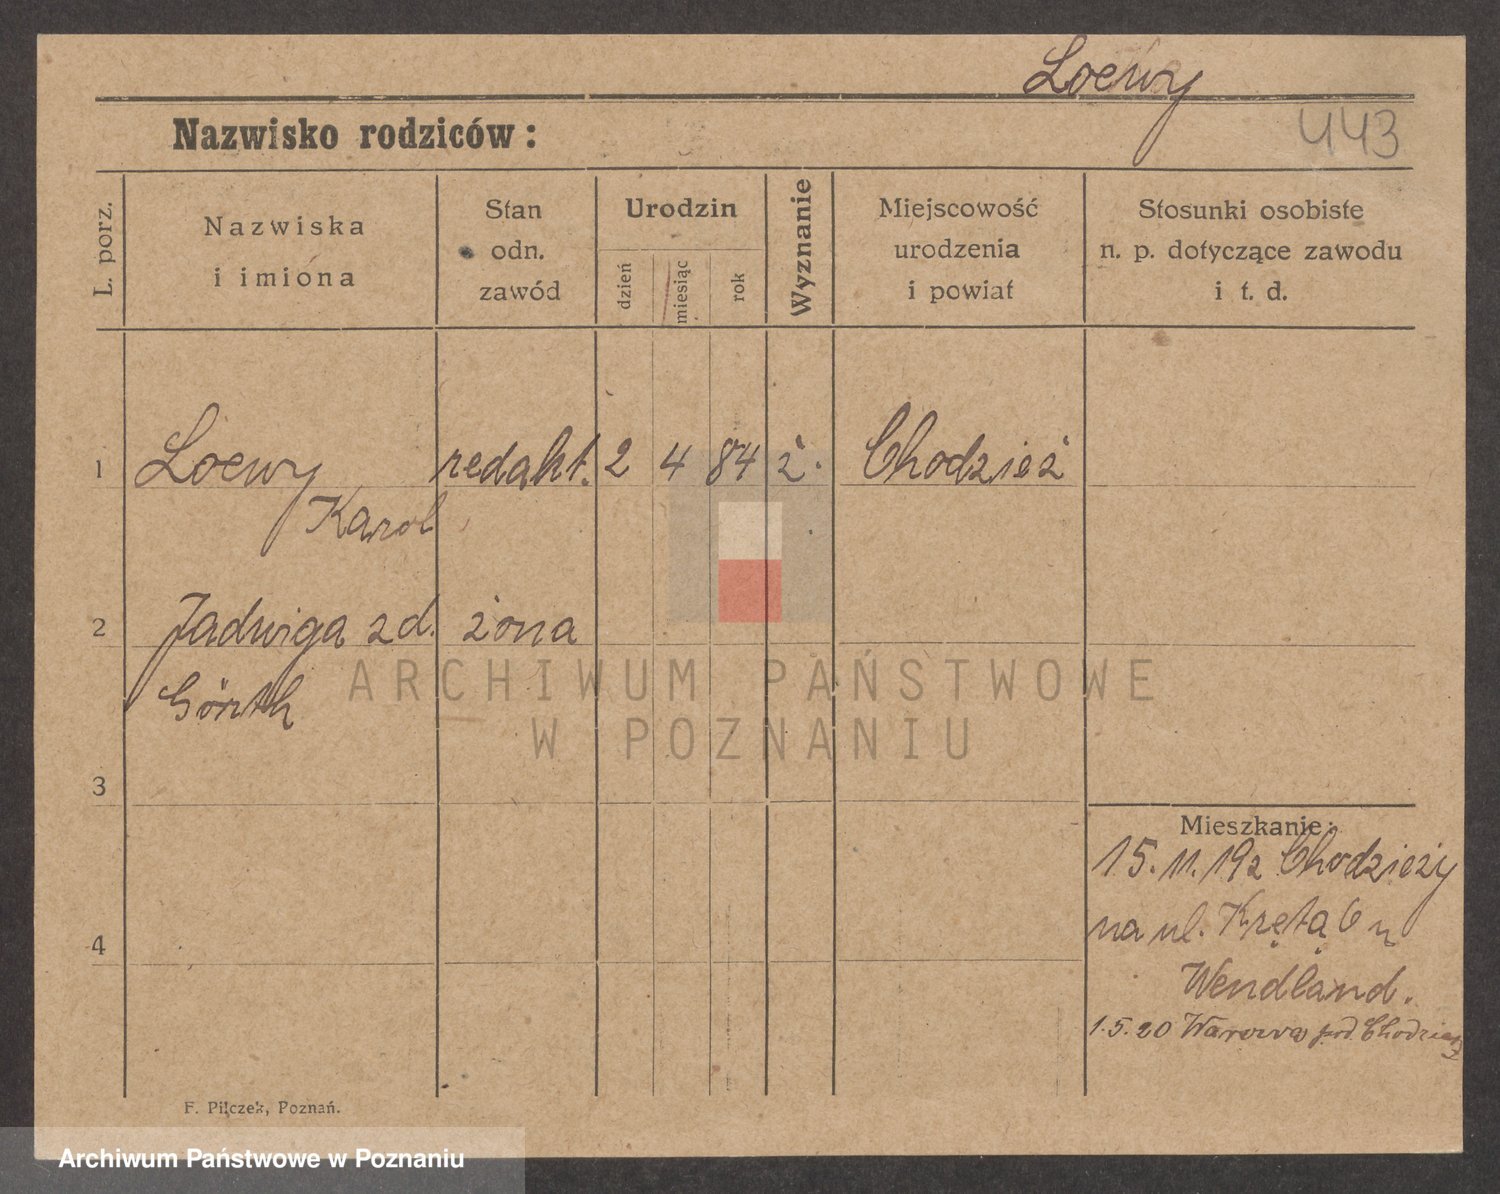 Loewy
Nazwisko rodziców:
443
L. porz.
Nazwiska
i imiona
Stan
odn.
zawód
Urodzin
dzień
miesiąc
rok
Wyznanie
Miejscowość
urodzenia
i powiat
Stosunki osobiste
n. p. dotyczące zawodu
i t. d.
1 Loewy redakt. 2 4 84 ż. Chodzież
Karol
2 Jadwiga zd. żona
ARCHIWUM PAŃSTWOWE
W POZNANIU
3
4
Mieszkanie:
15. 11. 19 z Chodzieży
na ul. Krętą 6 u
Wendland.
1. 5. 20 pod Chodzież
F. Pilczek, Poznań.
Archiwum Państwowe w Poznaniu